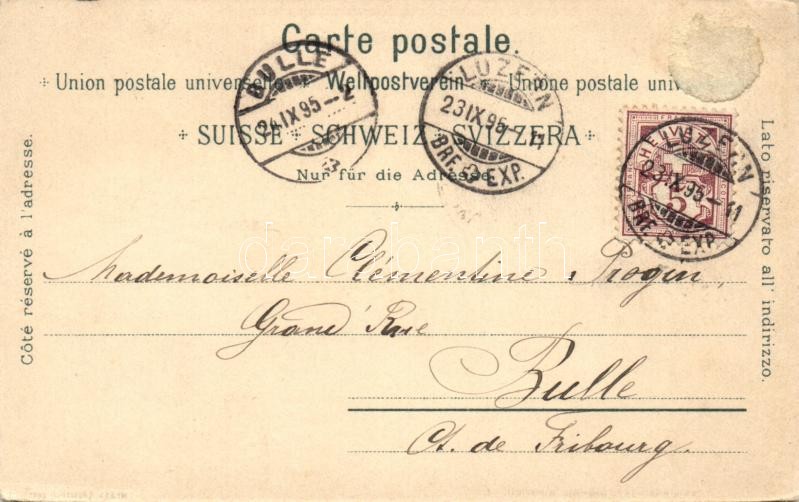 Carte postale.
Union postale universelle Weltpostverein Unione postale univ
SUISSE SCHWEIZ SVIZZERA
Nur für die Adresse
Côté réservé à l'adresse.
Lato riservato all' indirizzo.
BULLE
24 IX 95 – 2
LUZERN
23 IX 95 – 11
BRF. EXP.
HELVETIA
5
LUZERN
23 IX 95 – 11
BRF. EXP.
Mademoiselle Clémentine Progin,
Grand' Rue
Bulle
Ct. de Fribourg.
darabanth